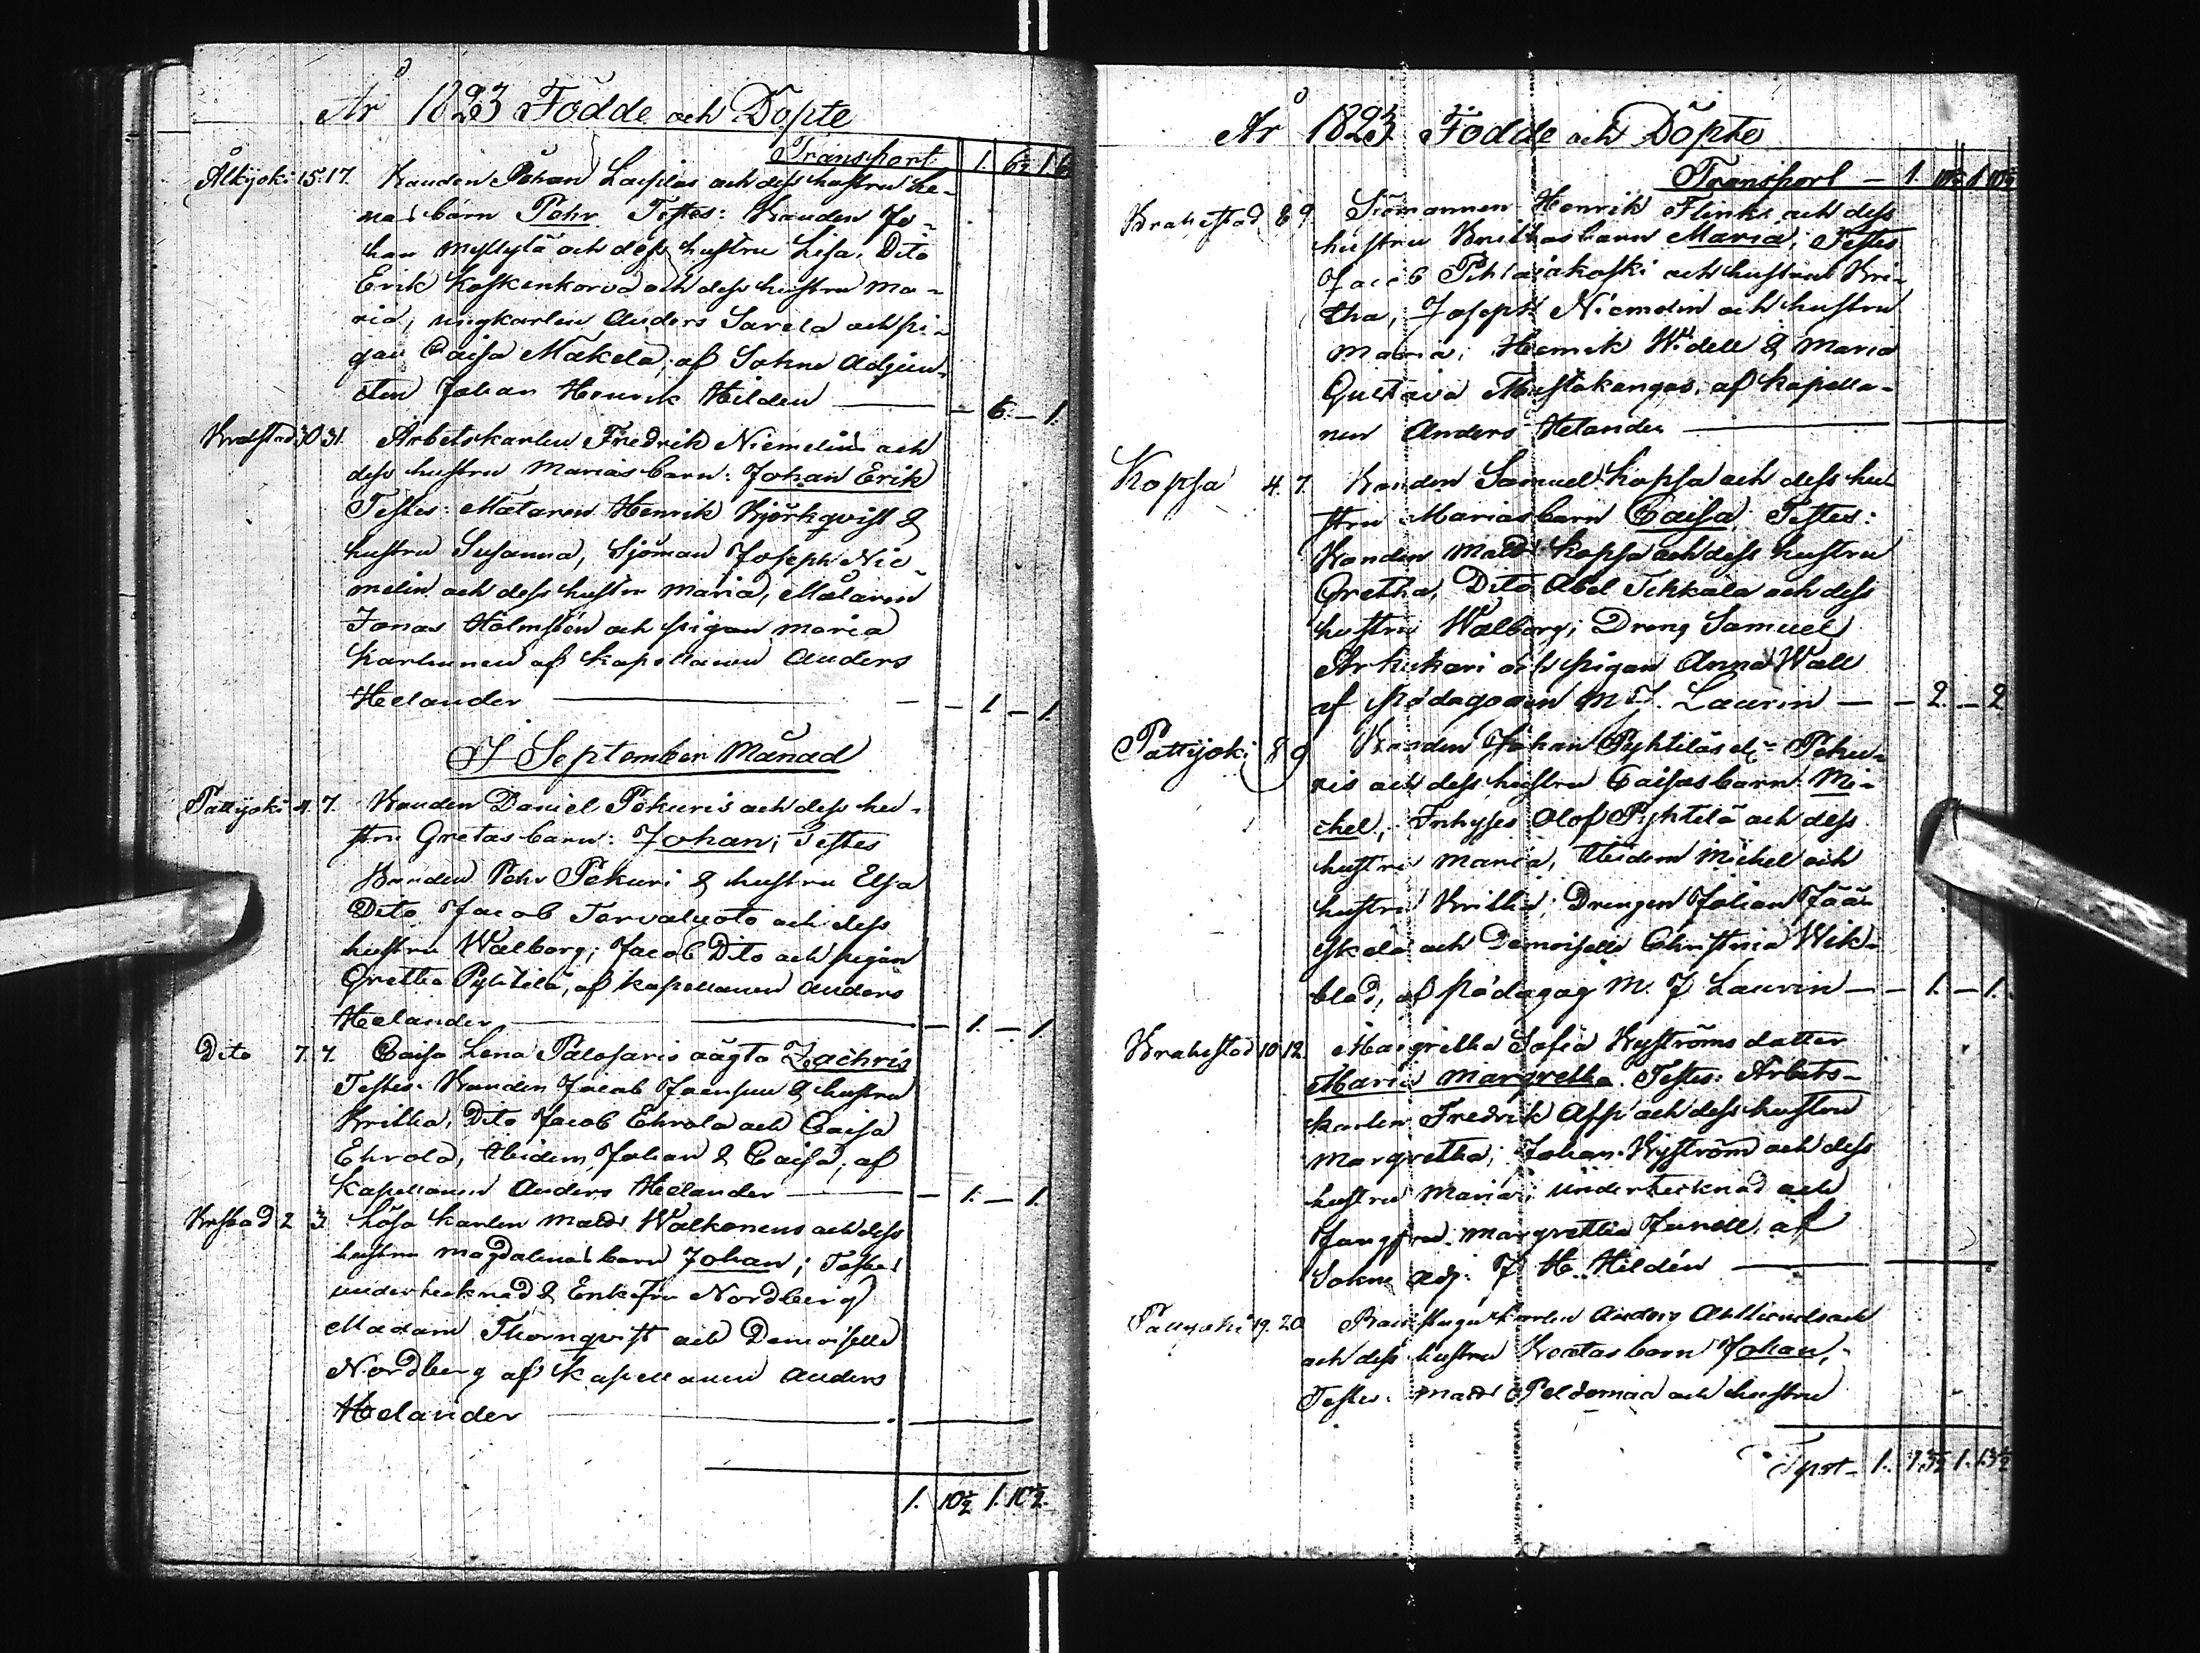 År 1823 Födde och Döpte
Transport 1. 6½ 1. 6
Ålkijoki 15. 17. Bonden Johan Laipias och dess hustru Le-
nas barn Pehr Testes: Bonden Jo-
han Myllylä och dess hustru Lisa, Dito
Erik Koskenkorva och dess hustru Ma-
ria, ungkarlen Anders Sarela och pi-
gan Caisa Mäkelä, af Sokne Adjunc-
ten Johan Henrik Hildén — – 6. – 1.
Brahstad 30 31. Arbetskarlen Fredrik Niemelins och
dess hustru Marias barn: Johan Erik
Testes: Målaren Henrik Björkqvist &
hustru Susanna, Sjöman Joseph Nie-
melin och dess hustru Maria, Målaren
Jonas Holmstén och pigan Maria
Karhunen af Kapellanen Anders
Helander — – 1 – 1.
I September Månad
Pattijoki 4. 7. Bonden Daniel Pekuris och dess hu-
stru Gretas barn: Johan; Testes
Bonden Pehr Pekuri & hustru Elsa
Dito Jacob Tarvaluoto och dess
hustru Walborg; Jacob Dito och pigan
Gretha Pyhtilä, af Kapellanen Anders
Helander — – 1. – 1.
Dito 7. 7. Caisa Lena Palosaris oägta Zachris
Testes: Bonden Jacob Joensuu & hustru
Britha, Dito Jacob Ehrola och Caisa
Ehrola, Ibidem Johan & Caisa, af
Kapellanen Anders Helander — – 1. – 1.
Brstad 2 3. Lösa karlen Matts Walkonens och dess
hustru Magdalenas barn Johan; Testes
undertecknad & Enkefru Nordberg
Madam Thornqvist och Demoiselle
Nordberg af Kapellanen Anders
Helander —
1. 10½ 1. 10½
År 1823 Födde och Döpte
Transport — 1. 10½ 1 10½
Brahestad 8 9 Sjömannen Henrik Flinks och dess
hustru Brithas barn Maria; Testes
Jacob Pihlajakoski och hustru Bri-
tha, Joseph Niemelin och hustru
Maria; Henrik Widell & Maria
Gustava Mustakangas, af Kapella-
nen Anders Helander —
Kopsa 4. 7. Bonden Samuel Kopsa och dess hu-
stru Marias barn Caisa; Testes:
Bonden Matts Kopsa och dess hustru
Gretha, Dito Abel Tikkala och dess
hustru Walborg; Dreng Samuel
Arhukari och pigan Anna Wall
af Pädagogen M. J. Laurin — – 2. – 2
Pattijoki 8 9 Bonden Johan Pyhtiläs el. Peku-
ris och dess hustru Caisas barn: Mi-
chel, Inhyses Olof Pyhtilä och dess
hustru Maria, Ibidem Michel och
hustru Britha; Drengen Johan Jääs-
kelä och Demoiselle Christina Wik-
blad, af Pädagog M. J. Laurin — – 1. – 1.
Brahestad 10 12. Margretha Sofia Nyströms datter
Maria Margretha. Testes: Arbets-
karlen Fredrik Appi och dess hustru
Margretha; Johan Nyström och dess
hustru Maria; undertecknad och
Jungfru Margretha Junell, af
Sokne Adj: J. H. Hildén —
Pattijoki 19. 20 Anders
och dess hustru barn Johan,
Testes: Matts Peldomaa och hustru
Tpst – 1. 13½ 1. 13½